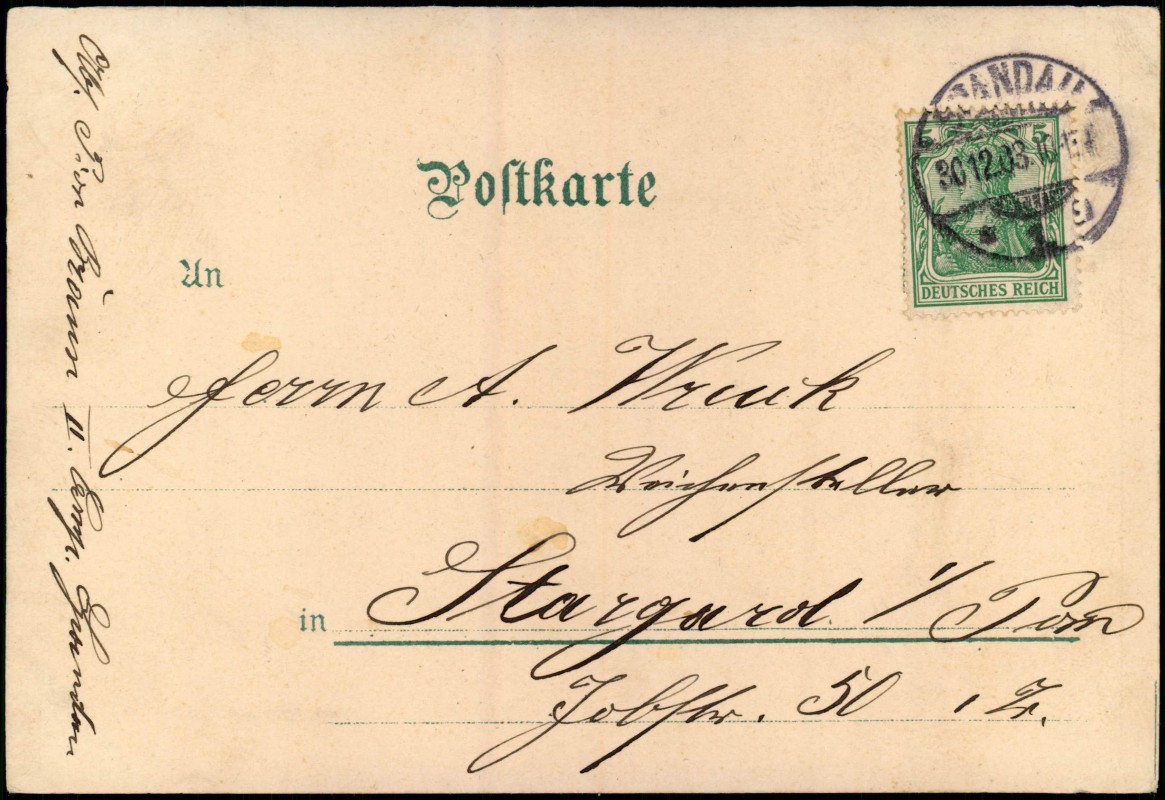 Postkarte
SPANDAU
30.12.03.
5 5
DEUTSCHES REICH
An
Herrn A. Wruck
Weichensteller
in Stargard i/Pom
Jobststr. 50, I Tr.
Abs. Pion.
II. Comp. Spandau